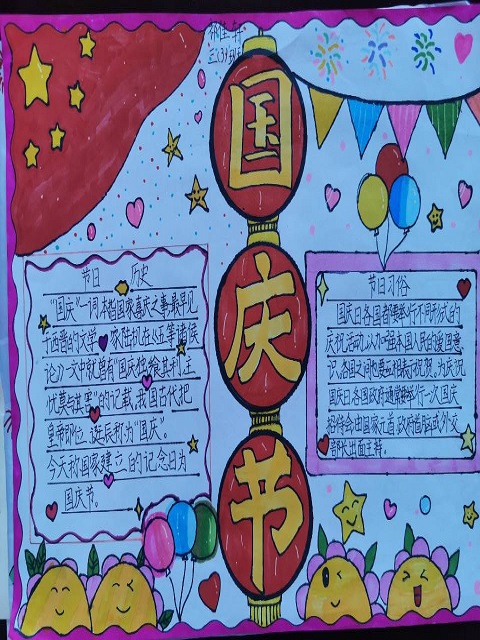 三(3)班
国
庆
节
节日 历史
"国庆"一词,本指国家喜庆之事,最早见
于西晋的文学家陆机在《五等诸侯
论》一文中就曾有"国庆独飨其利,主
忧莫与其害"的记载、我国古代把
皇帝即位、诞辰称为"国庆"。
今天称国家建立的记念日为
国庆节。
节日习俗
国庆日各国都要举行不同形式的
庆祝活动,以加强本国人民的爱国意
识,各国之间也要互相表示祝贺。为庆祝
国庆日各国政府通常要举行一次国庆
招待会由国家元首、政府首脑或外交
部长出面主持。